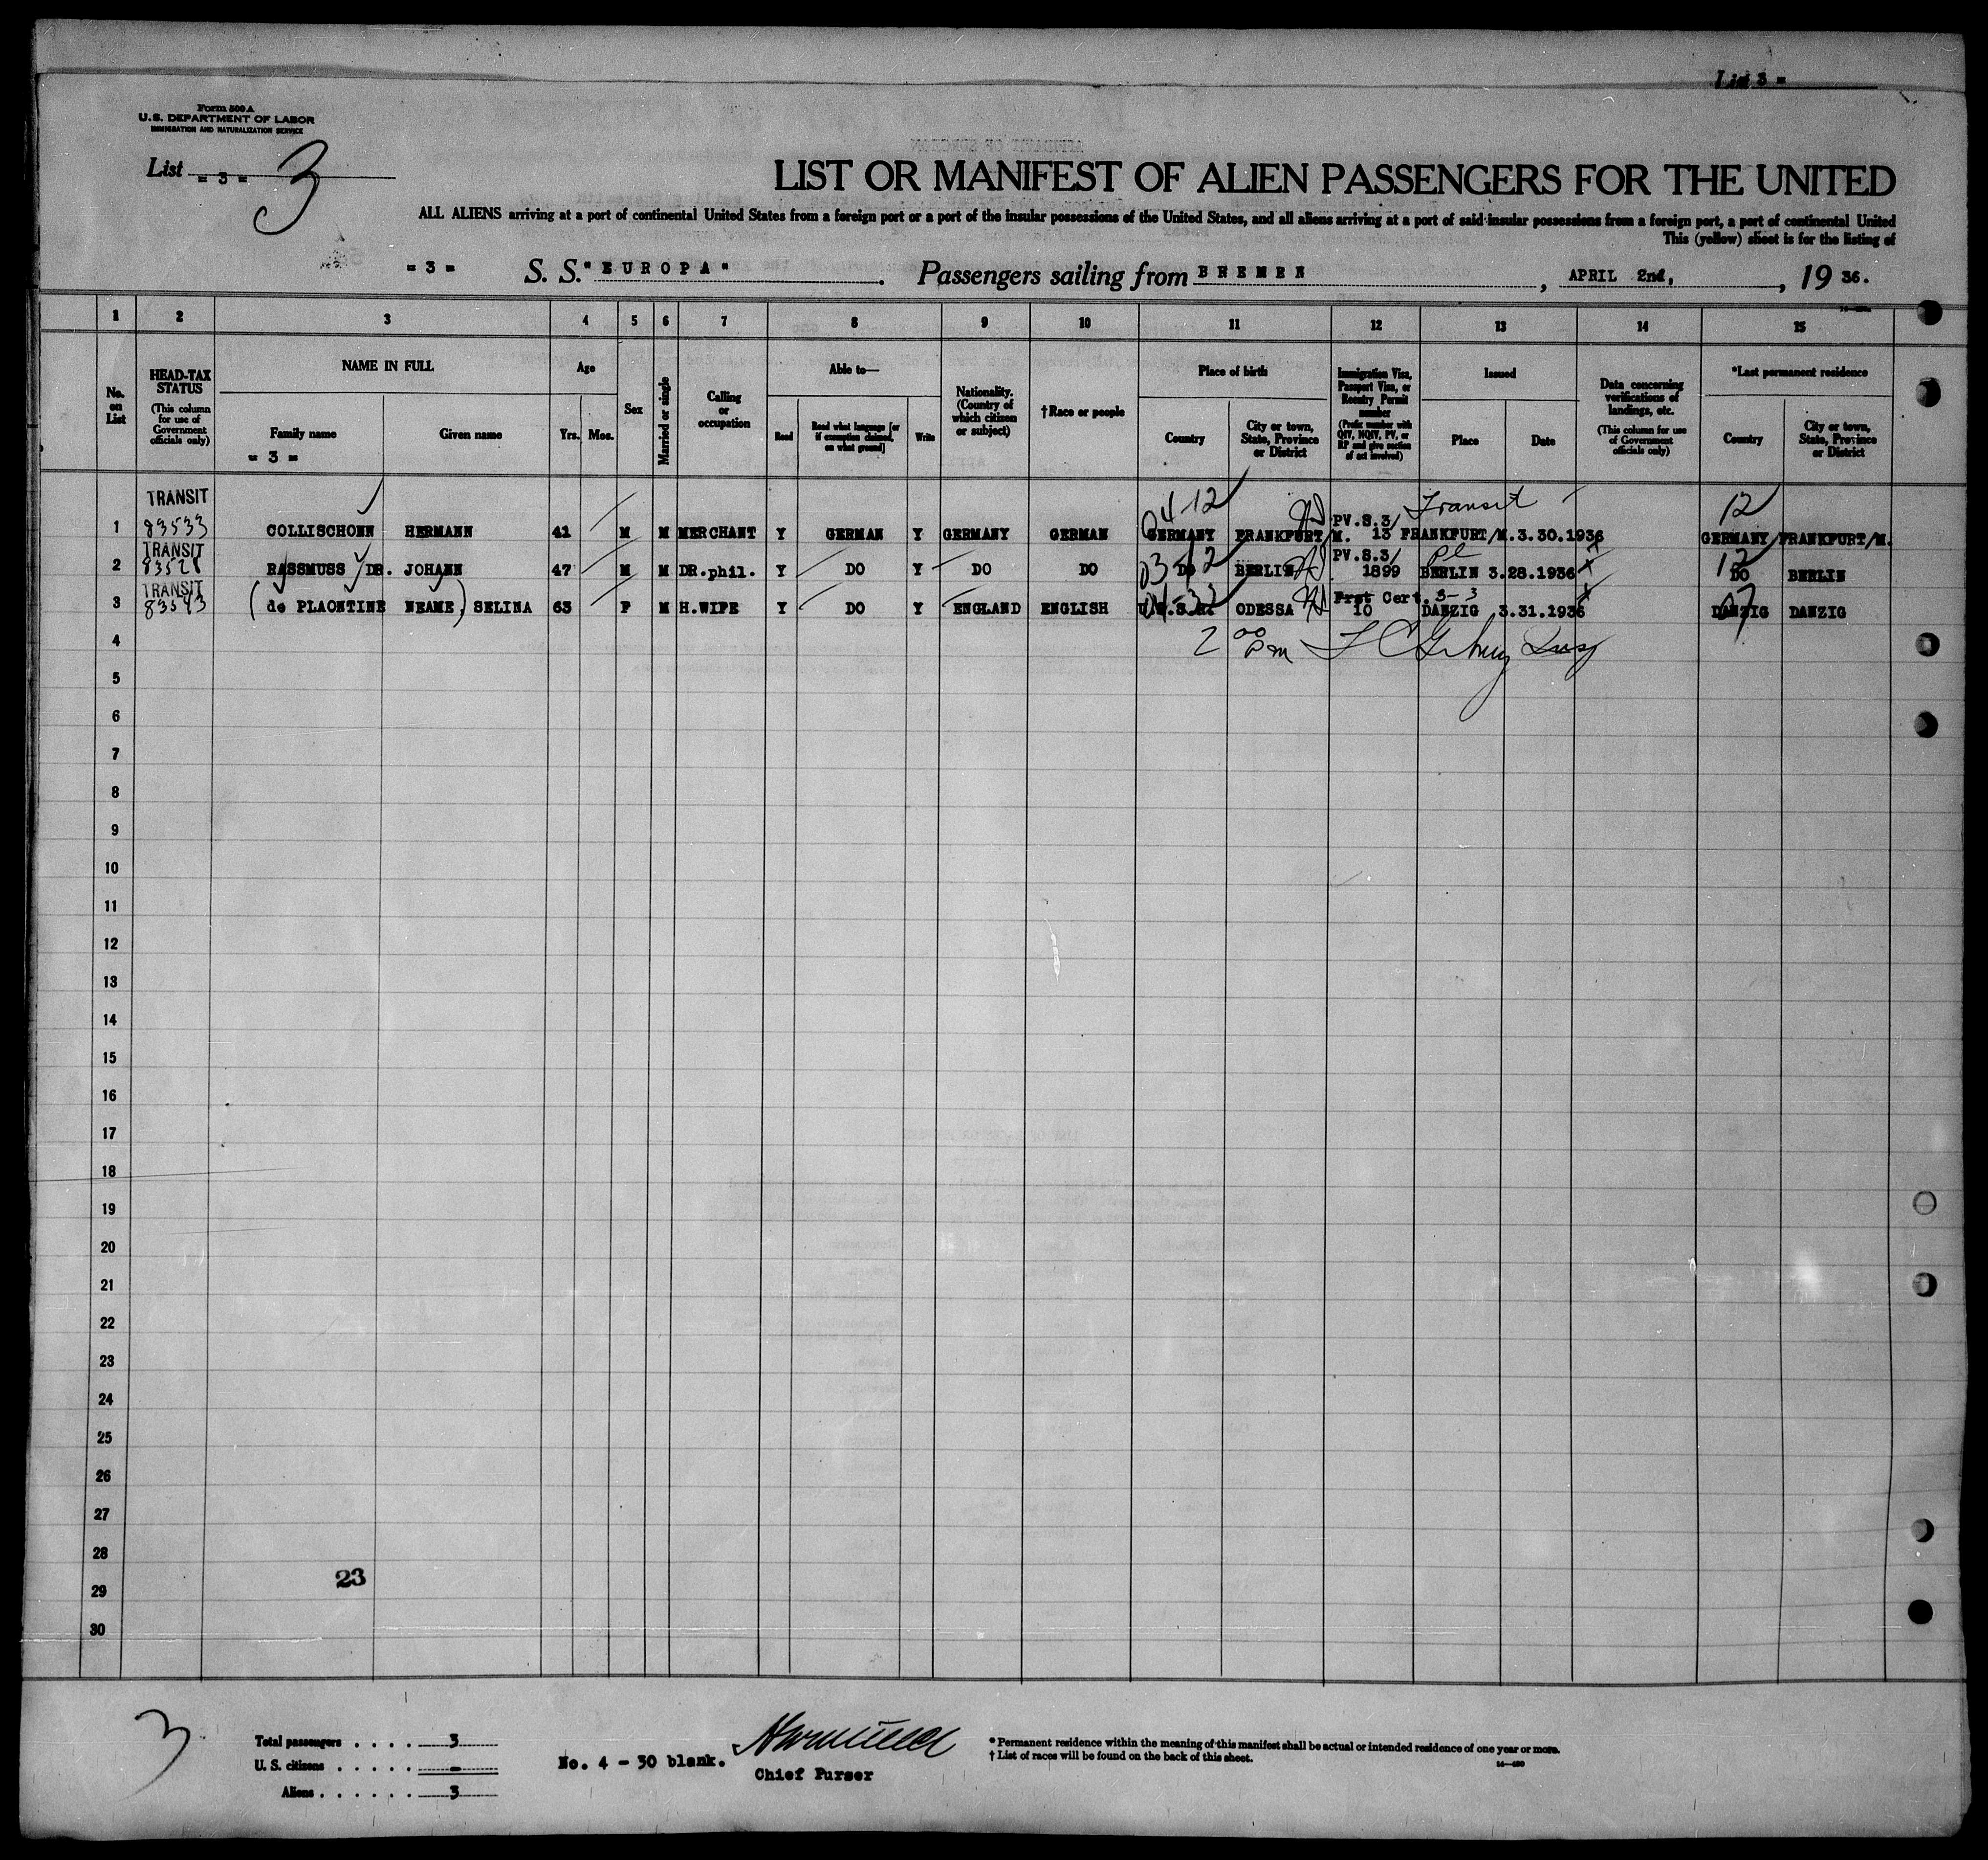 List 3 =
Form 500 A
U.S. DEPARTMENT OF LABOR
IMMIGRATION AND NATURALIZATION SERVICE
List = 3 = 3
LIST OR MANIFEST OF ALIEN PASSENGERS FOR THE UNITED
ALL ALIENS arriving at a port of continental United States from a foreign port or a port of the insular possessions of the United States, and all aliens arriving at a port of said insular possessions from a foreign port, a port of continental United
This (yellow) sheet is for the listing of
= 3 = S. S. "EUROPA". Passengers sailing from BREMEN, APRIL 2nd, 1936.
1 2 3 4 5 6 7 8 9 10 11 12 13 14 15
No. on List
HEAD-TAX STATUS
(This column for use of Government officials only)
NAME IN FULL
Family name
Given name
= 3 =
Age
Yrs. Mos.
Sex
Married or single
Calling or occupation
Able to—
Read
Read what language [or if exemption claimed, on what ground]
Write
Nationality. (Country of which citizen or subject)
†Race or people
Place of birth
Country
City or town, State, Province or District
Immigration Visa, Passport Visa, or Reentry Permit number
(Prefix number with QIV, NQIV, PV, or RP and give section of act involved)
Issued
Place
Date
Data concerning verifications of landings, etc.
(This column for use of Government officials only)
*Last permanent residence
Country
City or town, State, Province or District
TRANSIT 04-12 PV.S.3/ Transit 12
1 83533 COLLISCHONN HERMANN 41 M M MERCHANT Y GERMAN Y GERMANY GERMAN GERMANY FRANKFURT/M. 13 FRANKFURT/M. 3.30.1936 GERMANY FRANKFURT/M.
TRANSIT 03-12 PV.S.3/ 12
2 83528 RASSMUSS DR. JOHANN 47 M M DR.phil. Y DO Y DO DO DO BERLIN 1899 BERLIN 3.28.1936 DO BERLIN
TRANSIT Prst Cert. 3-3
3 83543 (de PLAONTINE NEAME) SELINA 63 F M H.WIFE Y DO Y ENGLAND ENGLISH U.S.S.R. ODESSA 10 DANZIG 3.31.1936 DANZIG DANZIG
4 2 00 pm
5
6
7
8
9
10
11
12
13
14
15
16
17
18
19
20
21
22
23
24
25
26
27
28
23
29
30
3
Total passengers . . . . 3
U. S. citizens . . . . . -
Aliens . . . . . . 3
No. 4 - 30 blank.
Chief Purser
* Permanent residence within the meaning of this manifest shall be actual or intended residence of one year or more.
† List of races will be found on the back of this sheet.